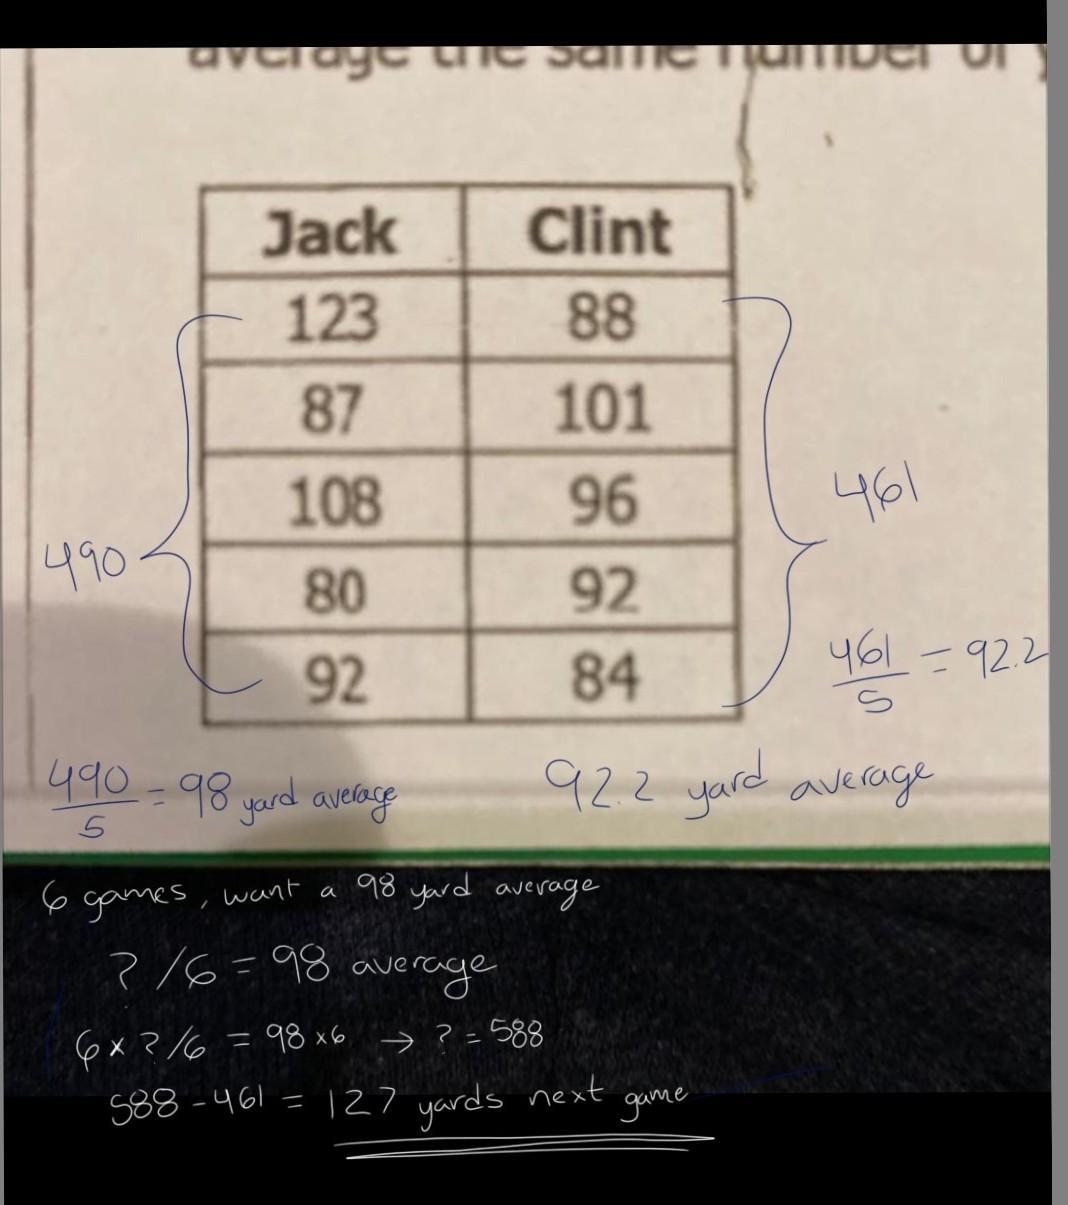 average the same number of
Jack Clint
123 88
87 101
108 96
80 92
92 84
490
461
461/5 = 92.2
490/5 = 98 yard average
92.2 yard average
6 games, want a 98 yard average
? /6 = 98 average
6 x ? /6 = 98 x 6 → ? = 588
588 - 461 = 127 yards next game